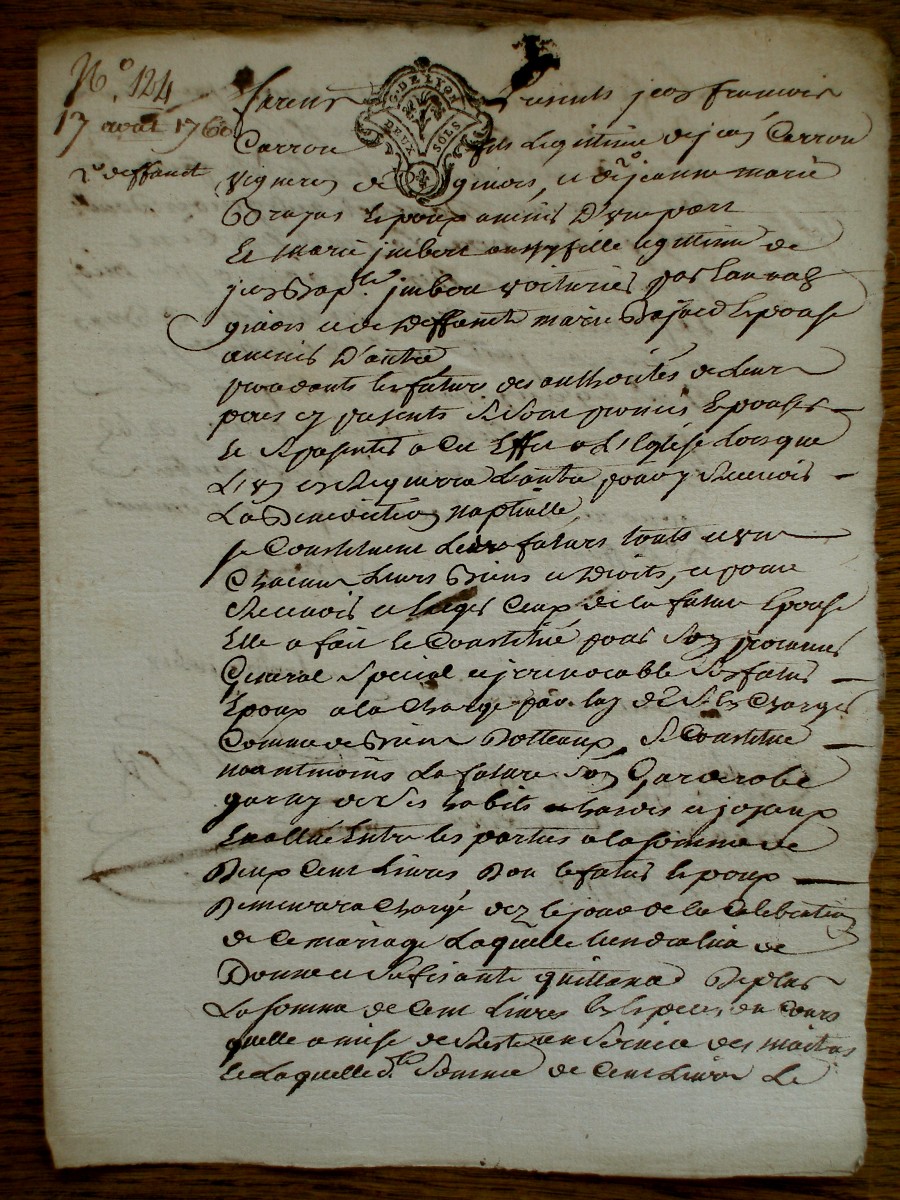 N° 124
17 aout 1760
G. DE LYON
DEUX SOLS
furent presents jean francois
Carron fils legitime de jean Carron
Vigneron de givors, et de jeanne marie
Epoux avenir D'une part
Et marie jmbert aussy fille legitime de
jean Bap.te jmbert Voiturier par
givors et de Deffuncte marie Bajard Epouse
avenir D'autre
procedants les futurs des authorités de Leurs
peres cy presents Se Sont promis Epouser
Et Se presenter a Cet Effet a L'Eglise Lorsque
L'un en Requerra L'autre pour y Recevoir
La Benediction Nuptialle
Se Constituent Les futurs touts et un
Chacun Leurs Biens et Droits, et pour
Recevoir et Exiger Ceux de la future Epouse
Elle a fait et Constitué pour Son procureur
General Special et jrrevocable Son futur
Epoux a la Charge par luy de S'en Charger
Comme de Biens Dotteaux, Se Constitue
neantmoins La future Son Garderobe
garny de Ses habits hardes et joyaux
Evallué Entre les parties a la Somme de
Deux Cent Livres Dont le futur Epoux
Demeurera Chargé dez le jour de la Celebration
de Ce mariage Laquelle tiendra lieu de
Bonne et Sufisante quittance De plus
La Somme de Cent Livres En Especes du Cours
quelle a mise de Reste en Service des maitres
et Laquelle d.te Somme de Cent Livres Le